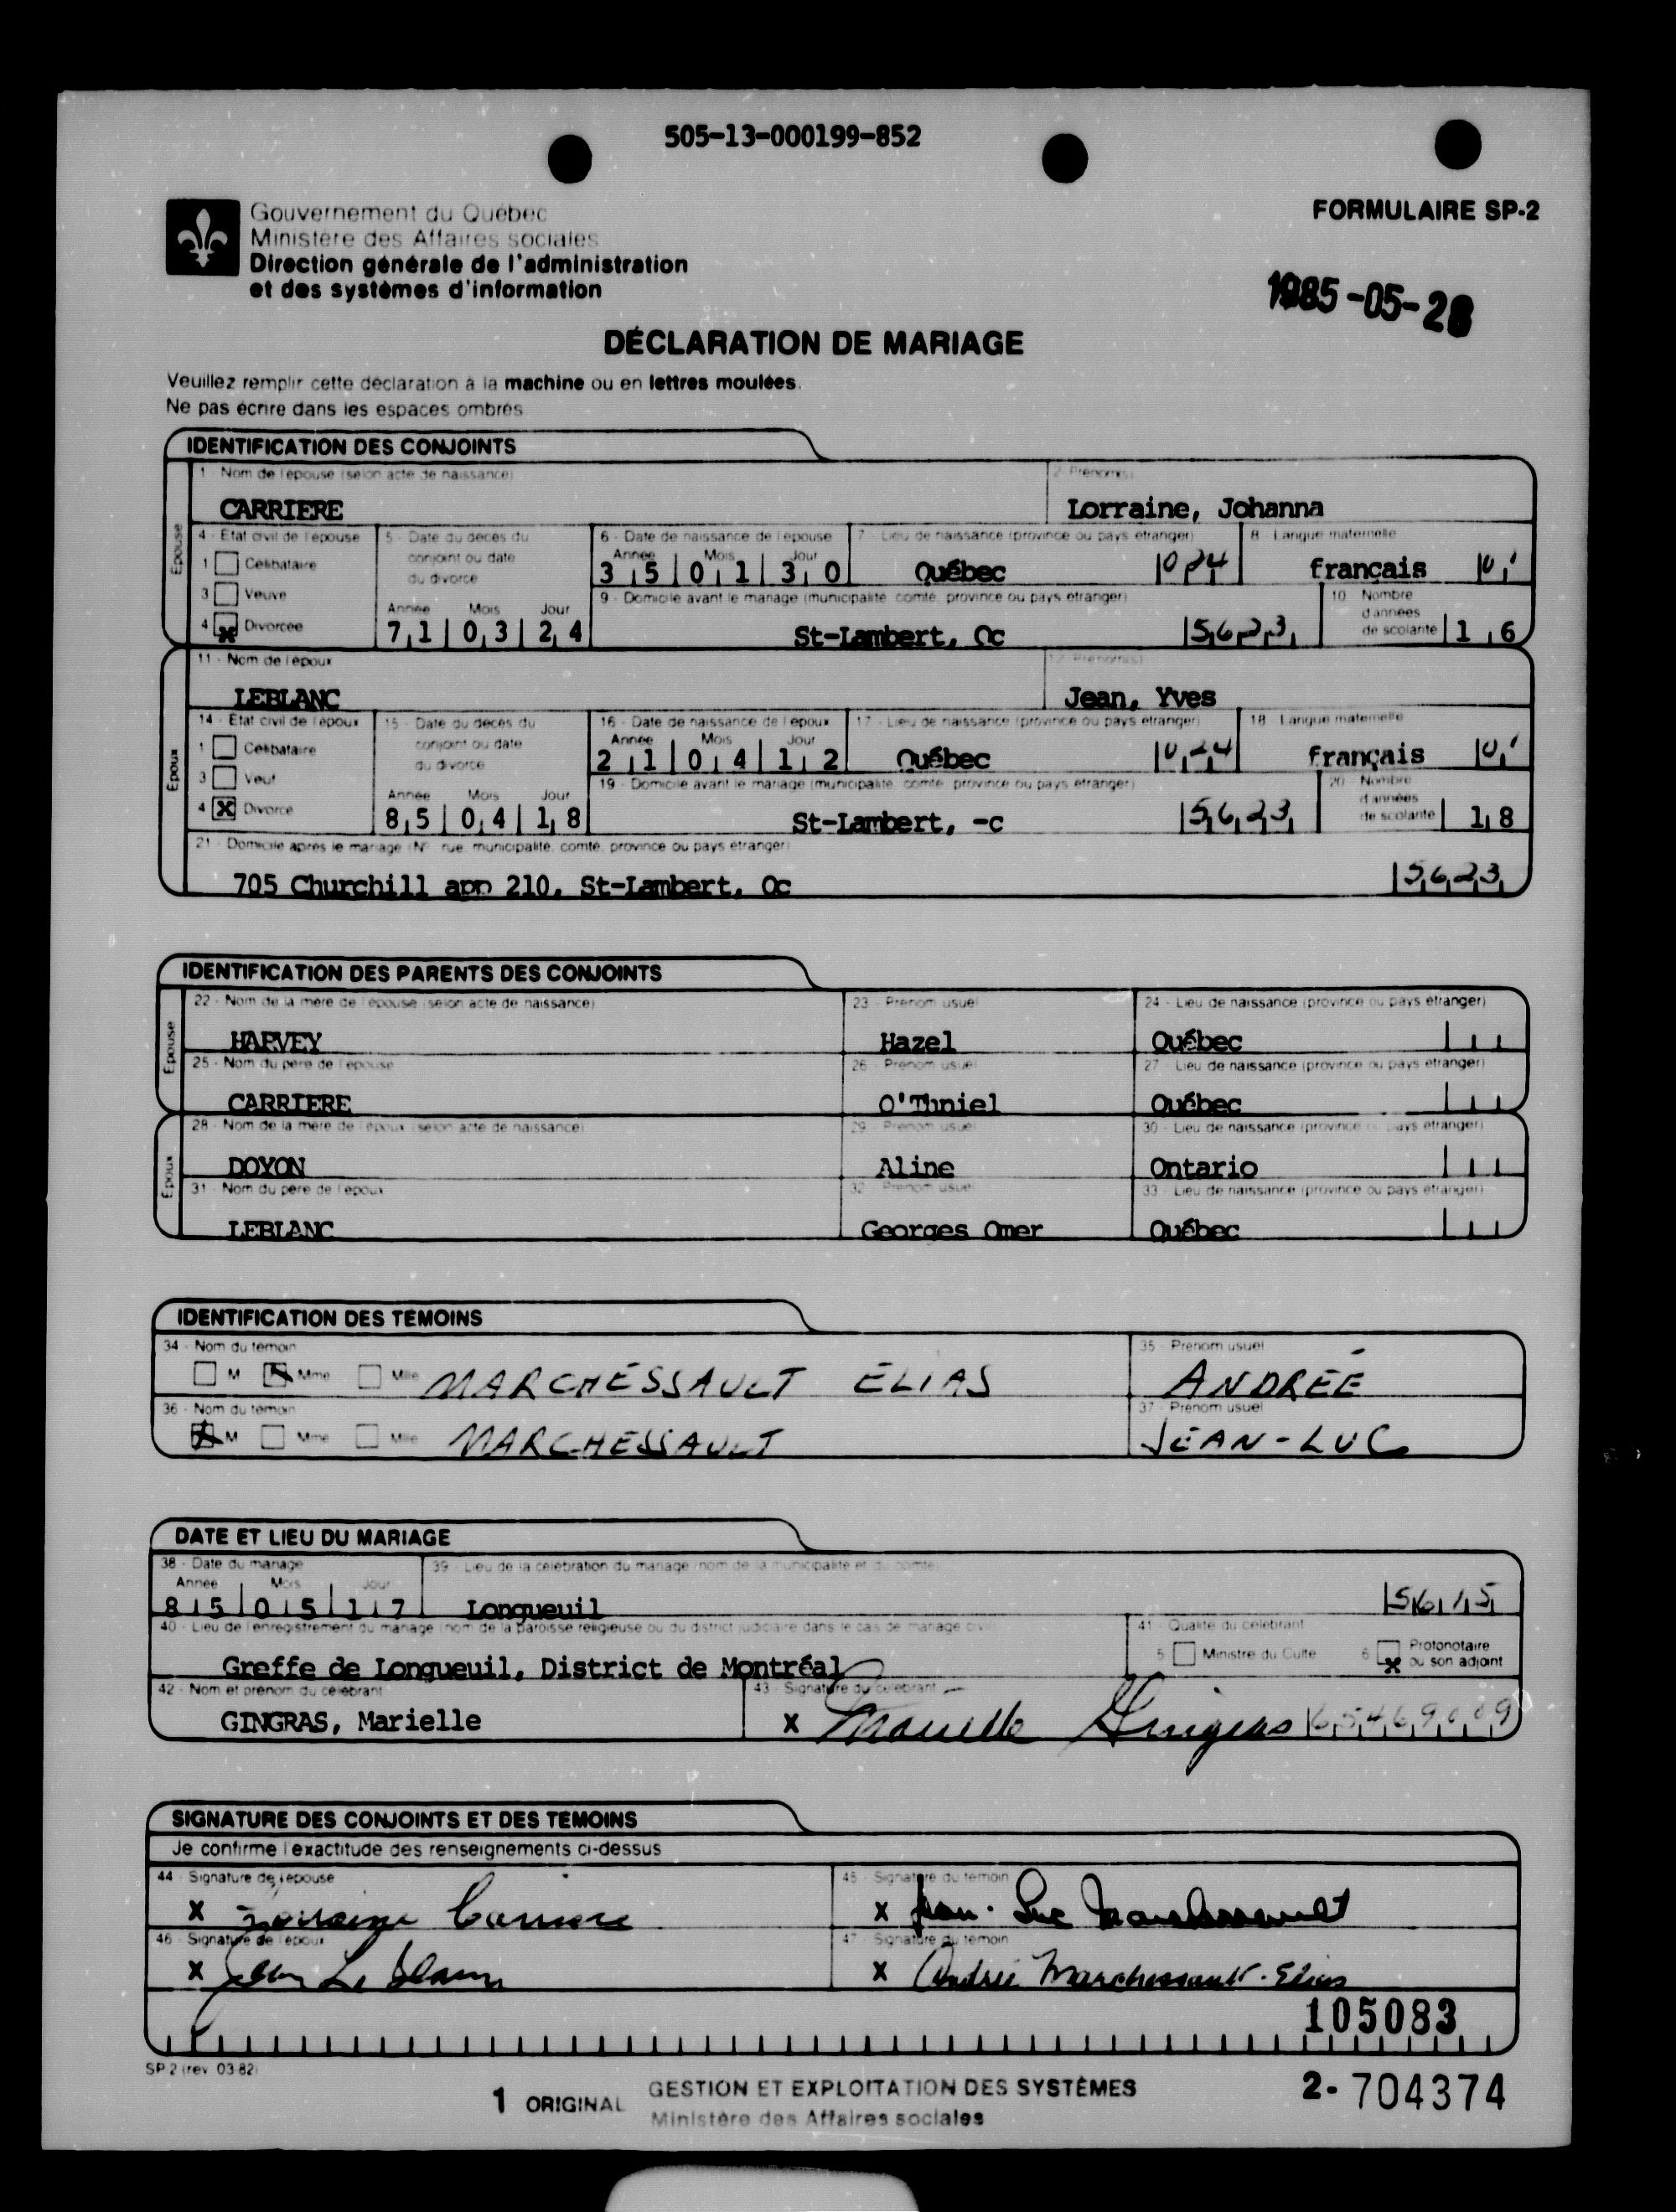 505-13-000199-852
Gouvernement du Québec
Ministère des Affaires sociales
Direction générale de l'administration
et des systèmes d'information
FORMULAIRE SP-2
1985-05-28
DÉCLARATION DE MARIAGE
Veuillez remplir cette déclaration à la machine ou en lettres moulées.
Ne pas écrire dans les espaces ombrés
IDENTIFICATION DES CONJOINTS
Epouse
1 - Nom de l'épouse (selon acte de naissance) 2 - Prénom(s)
CARRIERE Lorraine, Johanna
4 - État civil de l'épouse 5 - Date du décès du conjoint ou date du divorce 6 - Date de naissance de l'épouse 7 - Lieu de naissance (province ou pays étranger) 8 - Langue maternelle
1 Célibataire
3 Veuve
4 X Divorcée
Année Mois Jour
71 03 24
Année Mois Jour
35 01 30 Québec 024 français 01
9 - Domicile avant le mariage (municipalité, comté, province ou pays étranger) 10 - Nombre d'années de scolarité
St-Lambert, Qc 5623 16
Epoux
11 - Nom de l'époux 12 - Prénom(s)
LEBLANC Jean, Yves
14 - État civil de l'époux 15 - Date du décès du conjoint ou date du divorce 16 - Date de naissance de l'époux 17 - Lieu de naissance (province ou pays étranger) 18 - Langue maternelle
1 Célibataire
3 Veuf
4 X Divorcé
Année Mois Jour
85 04 18
Année Mois Jour
21 04 12 Québec 024 français 01
19 - Domicile avant le mariage (municipalité, comté, province ou pays étranger) 20 - Nombre d'années de scolarité
St-Lambert, -c 5623 18
21 - Domicile après le mariage (N° rue, municipalité, comté, province ou pays étranger)
705 Churchill app 210, St-Lambert, Qc 5623
IDENTIFICATION DES PARENTS DES CONJOINTS
Epouse
22 - Nom de la mère de l'épouse (selon acte de naissance) 23 - Prénom usuel 24 - Lieu de naissance (province ou pays étranger)
HARVEY Hazel Québec
25 - Nom du père de l'épouse 26 - Prénom usuel 27 - Lieu de naissance (province ou pays étranger)
CARRIERE O'Thniel Québec
Epoux
28 - Nom de la mère de l'époux (selon acte de naissance) 29 - Prénom usuel 30 - Lieu de naissance (province ou pays étranger)
DOYON Aline Ontario
31 - Nom du père de l'époux 32 - Prénom usuel 33 - Lieu de naissance (province ou pays étranger)
LEBLANC Georges Omer Québec
IDENTIFICATION DES TÉMOINS
34 - Nom du témoin 35 - Prénom usuel
M Mme Mlle MARCHESSAULT ELIAS ANDRÉE
36 - Nom du témoin 37 - Prénom usuel
M Mme Mlle MARCHESSAULT JEAN-LUC
DATE ET LIEU DU MARIAGE
38 - Date du mariage 39 - Lieu de la célébration du mariage (nom de la municipalité et du comté)
Année Mois Jour
85 05 17 Longueuil 5615
40 - Lieu de l'enregistrement du mariage (nom de la paroisse religieuse ou du district judiciaire dans le cas de mariage civil) 41 - Qualité du célébrant
Greffe de Longueuil, District de Montréal 5 Ministre du Culte 6 X Protonotaire ou son adjoint
42 - Nom et prénom du célébrant 43 - Signature du célébrant
GINGRAS, Marielle X Marielle Gingras
SIGNATURE DES CONJOINTS ET DES TÉMOINS
Je confirme l'exactitude des renseignements ci-dessus
44 - Signature de l'épouse 45 - Signature du témoin
X Lorraine Carriere X Jean-Luc Marchessault
46 - Signature de l'époux 47 - Signature du témoin
X Jean LeBlanc X Andrée Marchessault-Elias
105083
SP 2 (rev 03-82)
1 ORIGINAL
GESTION ET EXPLOITATION DES SYSTÈMES
Ministère des Affaires sociales
2-704374